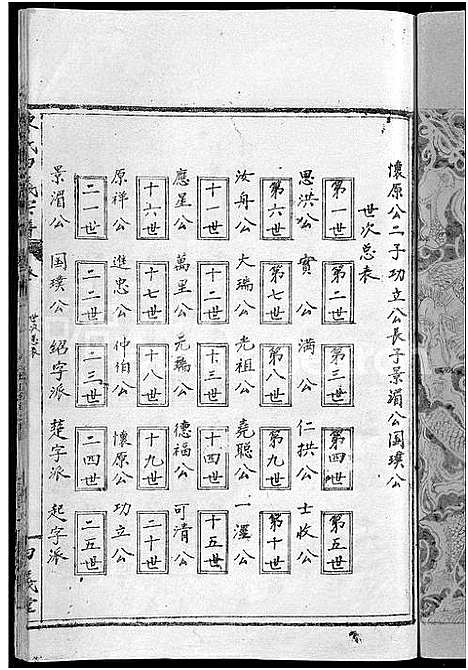 懷原公二子功立公長子景湄公国璞公
世次总表
第一世 第二世 第三世 第四世 第五世
思洪公 實公 满公 仁拱公 士收公
第六世 第七世 第八世 第九世 第十世
汝舟公 大瑞公 光祖公 堯聪公 一濹公
十一世 十二世 十三世 十四世 十五世
應星公 萬里公 元瑞公 德福公 可清公
十六世 十七世 十八世 十九世 二十世
原祥公 進忠公 仲伯公 懷原公 功立公
二一世 二二世 二三世 二四世 二五世
景湄公 国璞公 绍字派 楚字派 起字派
世次总表